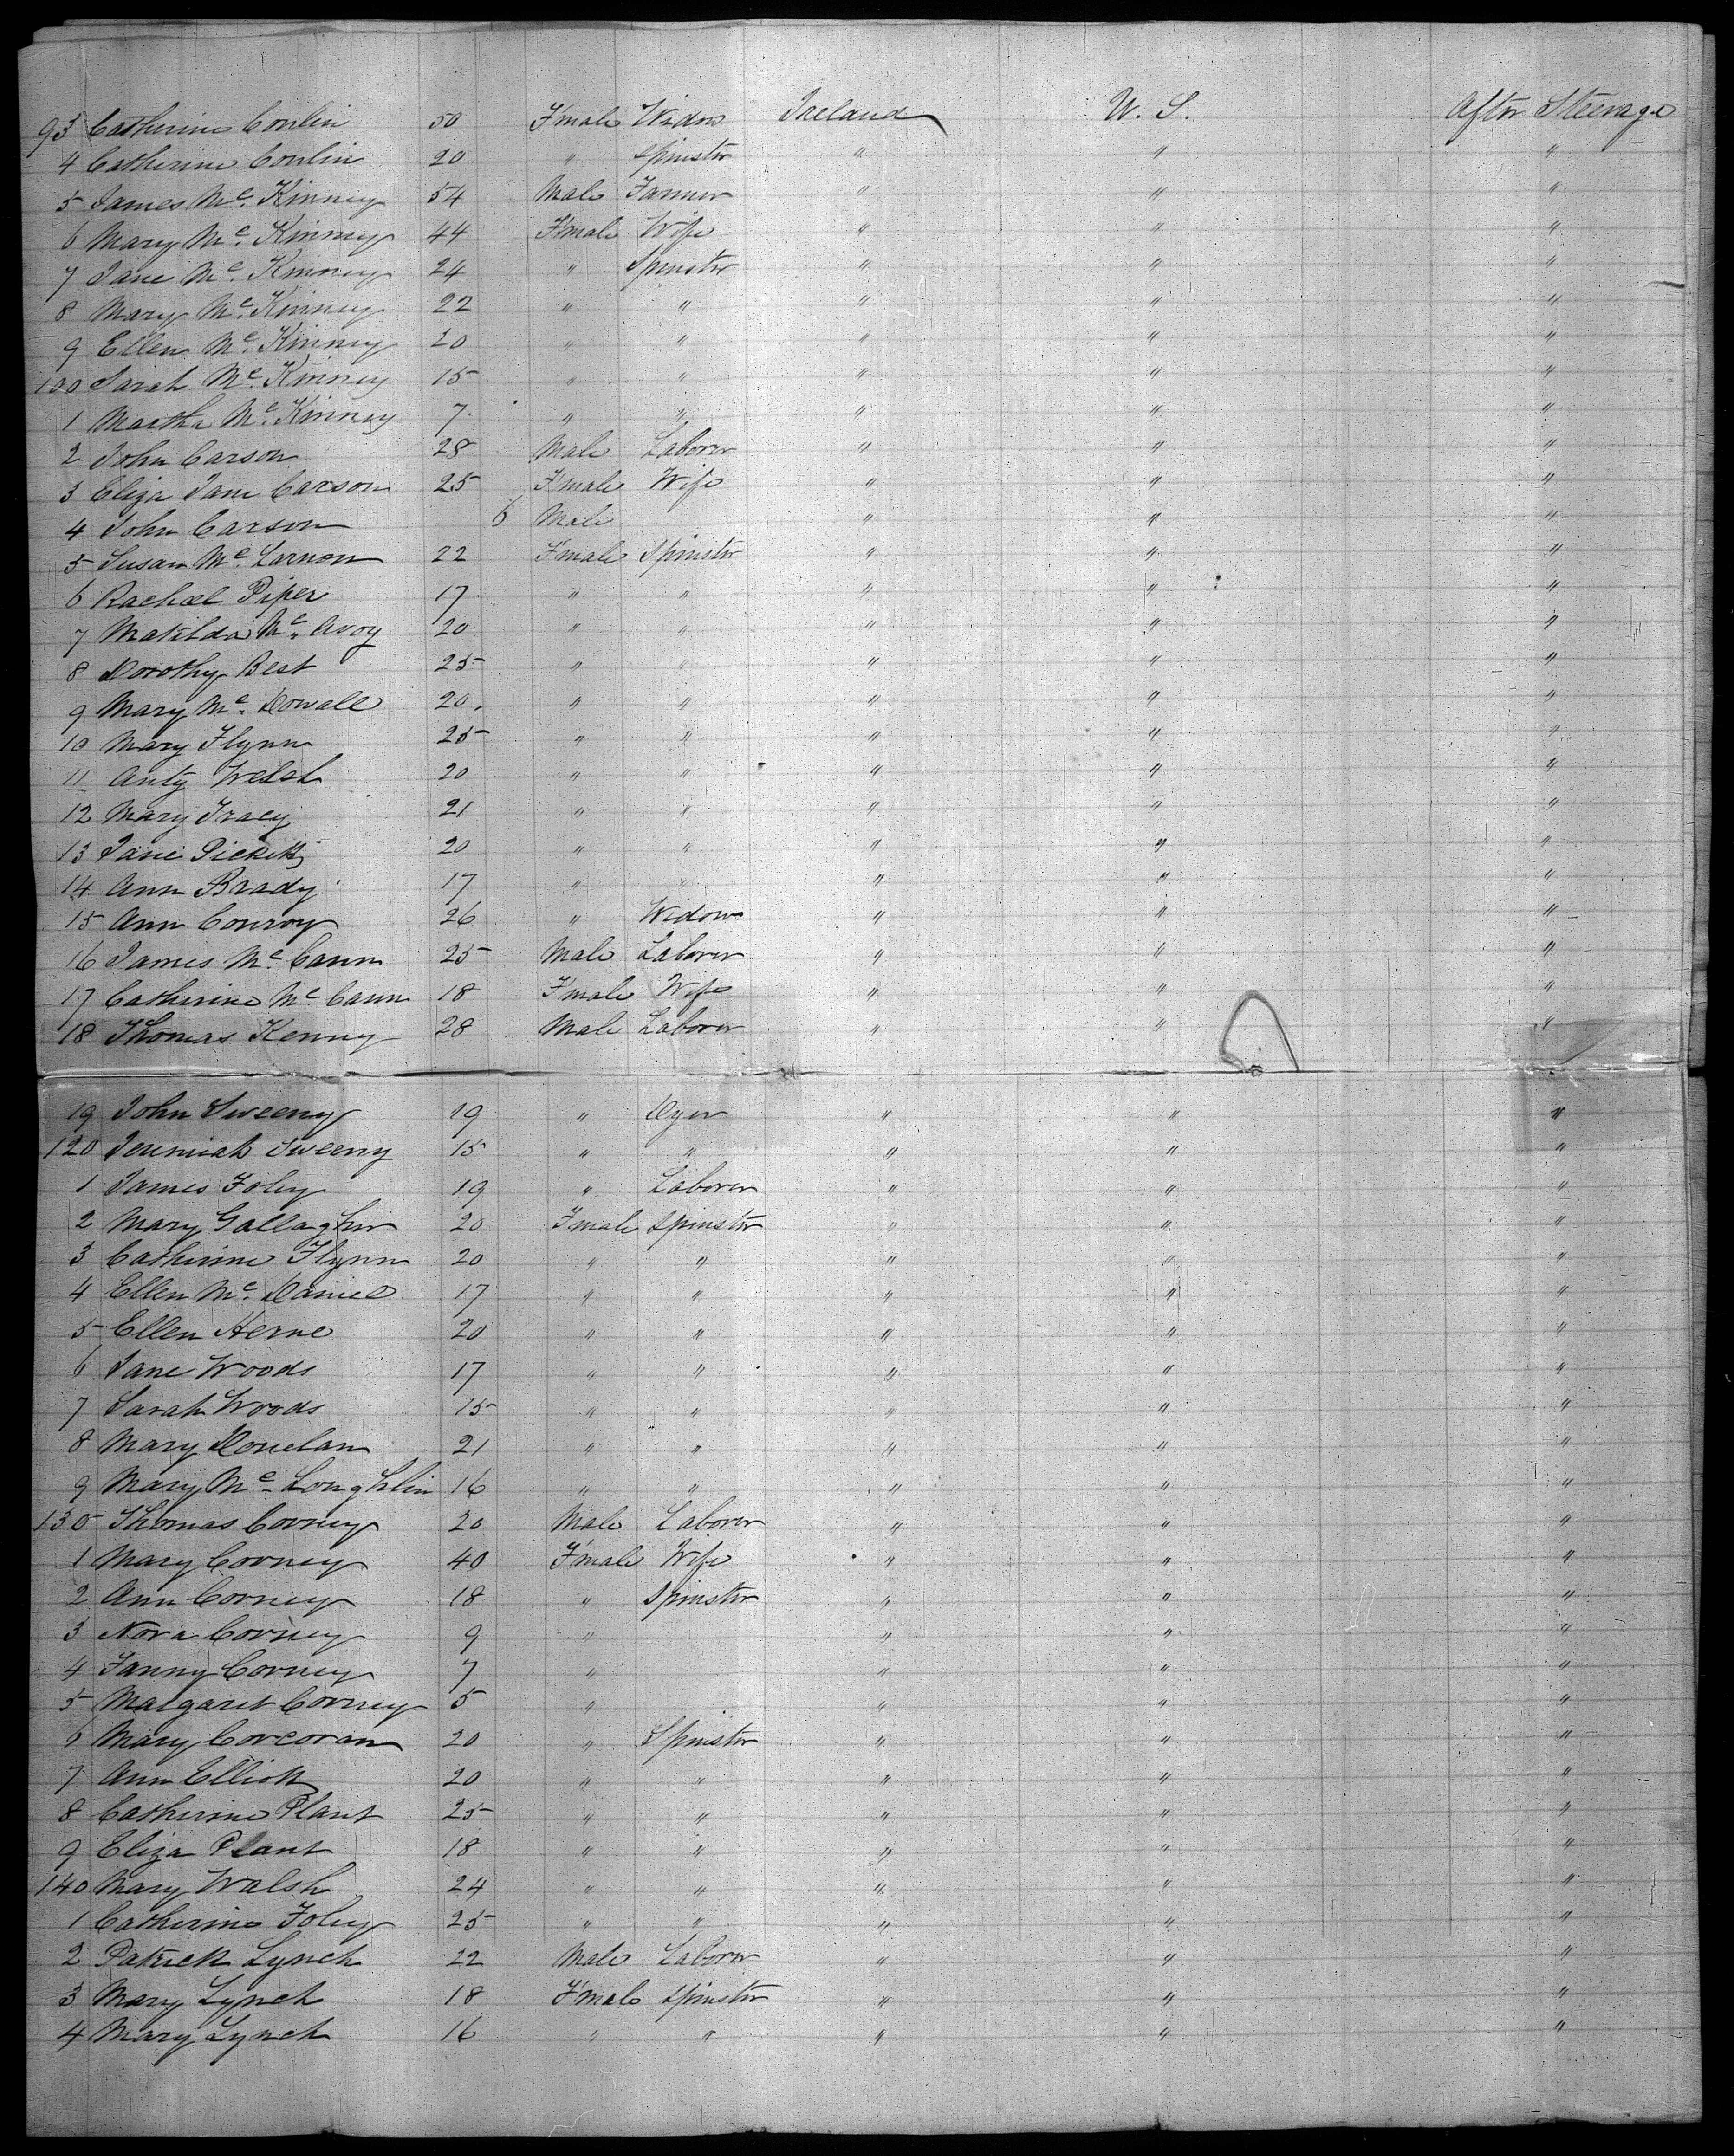 93 Catherine Conlin 50 Female Widow Ireland U. S. After Steerage
4 Catherine Conlin 20 " Spinster " " "
5 James Mc. Kinney 54 Male Farmer " " "
6 Mary Mc. Kinney 44 Female Wife " " "
7 Jane Mc. Kinney 24 " Spinster " " "
8 Mary Mc. Kinney 22 " " " " "
9 Ellen Mc. Kinney 20 " " " " "
100 Sarah Mc. Kinney 15 " " " " "
1 Martha Mc. Kinney 7 " " " " "
2 John Carson 28 Male Laborer " " "
3 Eliza Jane Carson 25 Female Wife " " "
4 John Carson 6 Male " " "
5 Susan Mc. Larnon 22 Female Spinster " " "
6 Rachael Piper 17 " " " " "
7 Matilda Mc. Avoy 20 " " " " "
8 Dorothy Best 25 " " " " "
9 Mary Mc. Dowall 20 " " " " "
10 Mary Flynn 25 " " " " "
11 Anty Welsh 20 " " " " "
12 Mary Tracy 21 " " " " "
13 Jane 20 " " " " "
14 Ann Brady 17 " " " " "
15 Ann Conroy 26 " Widow " " "
16 James Mc. Cann 25 Male Laborer " " "
17 Catherine Mc. Cann 18 Female Wife " " "
18 Thomas Kenny 28 Male Laborer " " "
19 John Sweeny 19 " Dyer " " "
120 Jeremiah Sweeny 15 " " " " "
1 James Foley 19 " Laborer " " "
2 Mary Gallagher 20 Female Spinster " " "
3 Catherine Flynn 20 " " " " "
4 Ellen Mc. Daniel 17 " " " " "
5 Ellen Herne 20 " " " " "
6 Jane Woods 17 " " " " "
7 Sarah Woods 15 " " " " "
8 Mary Donelan 21 " " " " "
9 Mary Mc. Loughlin 16 " " " " "
130 Thomas Corney 20 Male Laborer " " "
1 Mary Corney 40 Female Wife " " "
2 Ann Corney 18 " Spinster " " "
3 Nora Corney 9 " " " "
4 Fanny Corney 7 " " " "
5 Margaret Corney 5 " " " "
6 Mary Corcoran 20 " Spinster " " "
7 Ann Elliott 20 " " " " "
8 Catherine Plant 25 " " " " "
9 Eliza Plant 18 " " " " "
140 Mary Walsh 24 " " " " "
1 Catherine Foley 25 " " " " "
2 Patrick Lynch 22 Male Laborer " " "
3 Mary Lynch 18 Female Spinster " " "
4 Mary Lynch 16 " " " " "